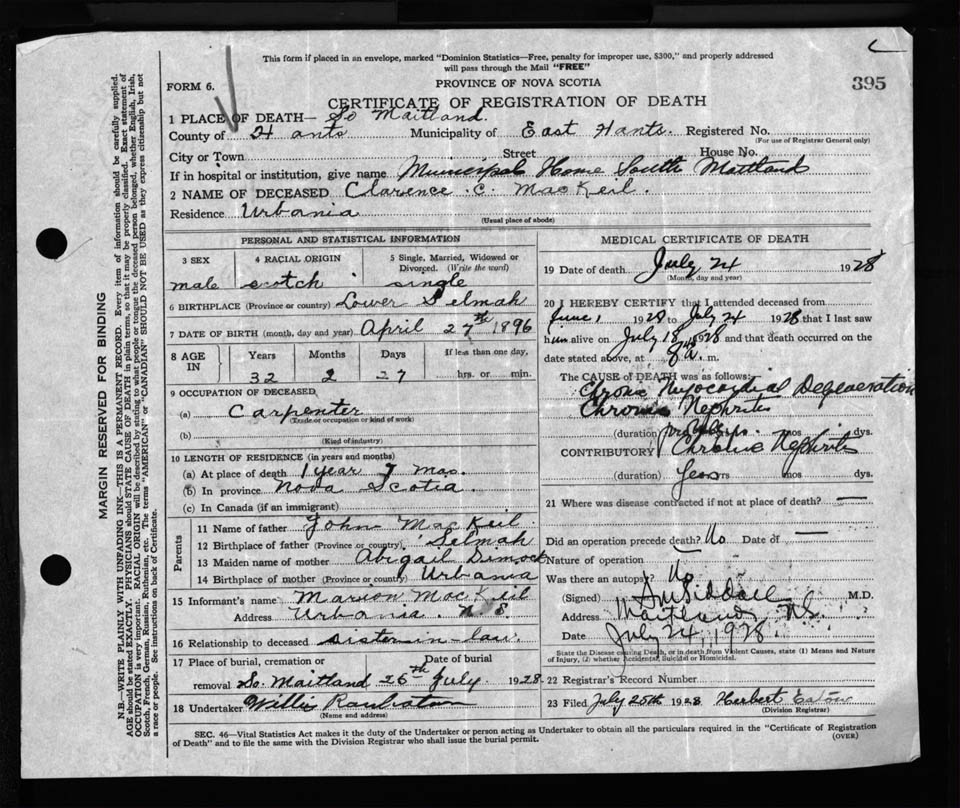 This form if placed in an envelope, marked "Dominion Statistics—Free, penalty for improper use, $300," and properly addressed
will pass through the Mail "FREE"
FORM 6.
PROVINCE OF NOVA SCOTIA
395
CERTIFICATE OF REGISTRATION OF DEATH
1 PLACE OF DEATH— So Maitland.
County of Hants Municipality of East Hants. Registered No.
(For use of Registrar General only)
City or Town Street House No.
If in hospital or institution, give name Municipal Home South Maitland
2 NAME OF DECEASED Clarence C. MacKeil.
Residence Urbania
(Usual place of abode)
PERSONAL AND STATISTICAL INFORMATION
3 SEX 4 RACIAL ORIGIN 5 Single, Married, Widowed or Divorced. (Write the word)
male scotch single
6 BIRTHPLACE (Province or country) Lower Selmah
7 DATE OF BIRTH (month, day and year) April 27th 1896
8 AGE IN Years Months Days If less than one day,
32 2 27 hrs. or min.
9 OCCUPATION OF DECEASED
(a) Carpenter
(Trade or occupation or kind of work)
(b)
(Kind of industry)
10 LENGTH OF RESIDENCE (in years and months)
(a) At place of death 1 year 7 Mos.
(b) In province Nova Scotia.
(c) In Canada (if an immigrant)
Parents
11 Name of father John MacKeil
12 Birthplace of father (Province or country) Selmah
13 Maiden name of mother Abigail Dimock
14 Birthplace of mother (Province or country) Urbania
15 Informant's name Marion MacKeil
Address Urbania N.S
16 Relationship to deceased sister-in-law.
17 Place of burial, cremation or Date of burial
removal So. Maitland 26th July 1928.
18 Undertaker Willis
(Name and address)
MEDICAL CERTIFICATE OF DEATH
19 Date of death July 24 1928
(Month, day and year)
20 I HEREBY CERTIFY that I attended deceased from
June 1 1928 to July 24 1928 that I last saw
him alive on July 18 1928 and that death occurred on the
date stated above, at 8 a. m.
The CAUSE OF DEATH was as follows:
Myocardial Degeneration
Chronic Nephritis
(duration) yrs. mos dys.
CONTRIBUTORY Chronic Nephritis
(duration) Years yrs mos dys.
21 Where was disease contracted if not at place of death? —
Did an operation precede death? No Date of —
Nature of operation —
Was there an autopsy? No
(Signed) M.D.
Address Maitland, N.S.
Date July 24, 1928.
State the Disease causing Death, or in death from Violent Causes, state (1) Means and Nature
of Injury, (2) whether Accidental, Suicidal or Homicidal.
22 Registrar's Record Number
23 Filed July 25th 1928 Herbert
(Division Registrar)
SEC. 46—Vital Statistics Act makes it the duty of the Undertaker or person acting as Undertaker to obtain all the particulars required in the "Certificate of Registration
of Death" and to file the same with the Division Registrar who shall issue the burial permit.
(OVER)
MARGIN RESERVED FOR BINDING
N.B.—WRITE PLAINLY WITH UNFADING INK—THIS IS A PERMANENT RECORD. Every item of information should be carefully supplied.
AGE should be stated EXACTLY. PHYSICIANS should STATE CAUSE OF DEATH in plain terms, so that it may be properly classified. Exact statement of
OCCUPATION is very important. RACIAL ORIGIN will be described by stating to what people or tongue the deceased person belonged, whether English, Irish,
Scotch, French, German, Russian, Ruthenian, etc. The terms "AMERICAN" or "CANADIAN" SHOULD NOT BE USED as they express citizenship but not
a race or people. See instructions on back of Certificate.